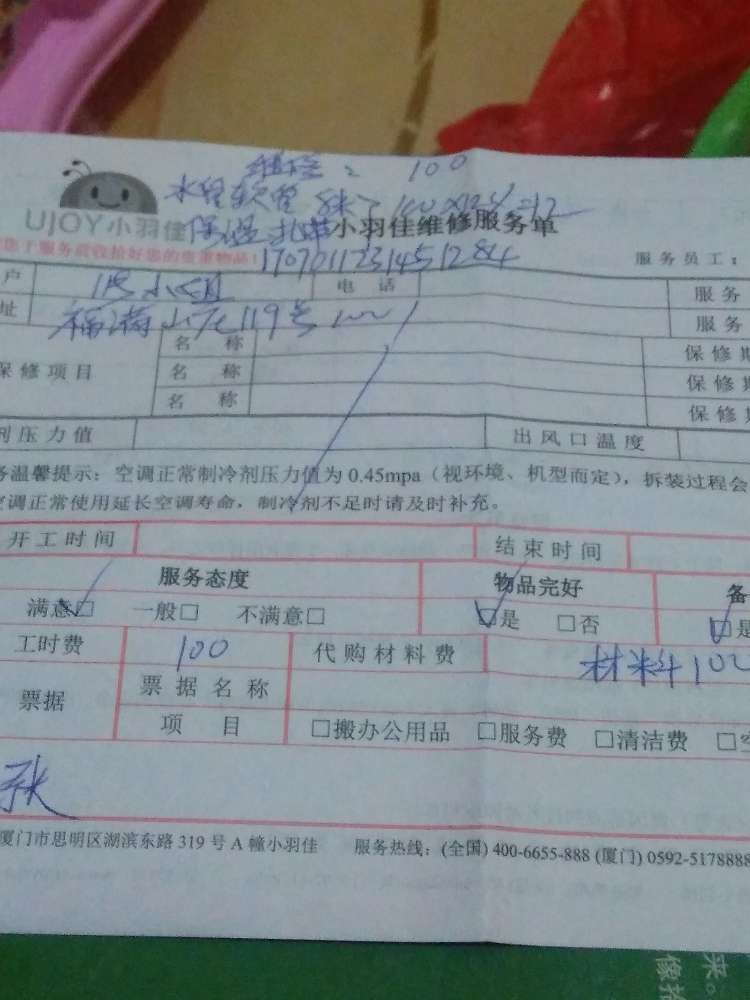 100
水管软管
UJOY小羽佳
小羽佳维修服务单
您于服务前收拾好您的贵重物品!
1707011231451284
服务员工:
户
电 话
服务
址
福满山庄119号
服务
保修项目
名 称
保修期
名 称
保修期
名 称
保修期
剂压力值
出风口温度
务温馨提示:空调正常制冷剂压力值为 0.45mpa(视环境、机型而定),拆装过程会
空调正常使用延长空调寿命,制冷剂不足时请及时补充。
开工时间
结束时间
服务态度
物品完好
备
满意☑ 一般□ 不满意□
☑是 □否
☑是
工时费
100
代购材料费
材料100
票据
票据名称
项 目
□搬办公用品 □服务费 □清洁费 □空
张
厦门市思明区湖滨东路 319 号 A 幢小羽佳 服务热线:(全国) 400-6655-888 (厦门) 0592-5178888
来。
像